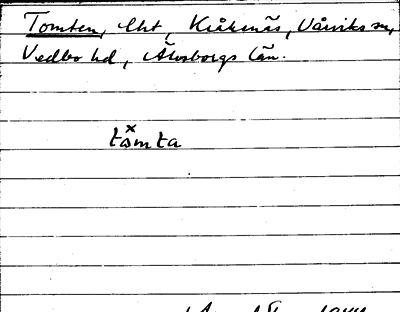 Tomten, lht, Kråknäs, Vårviks sn,
Vedbo hd, Älvsborgs län.
tåmta